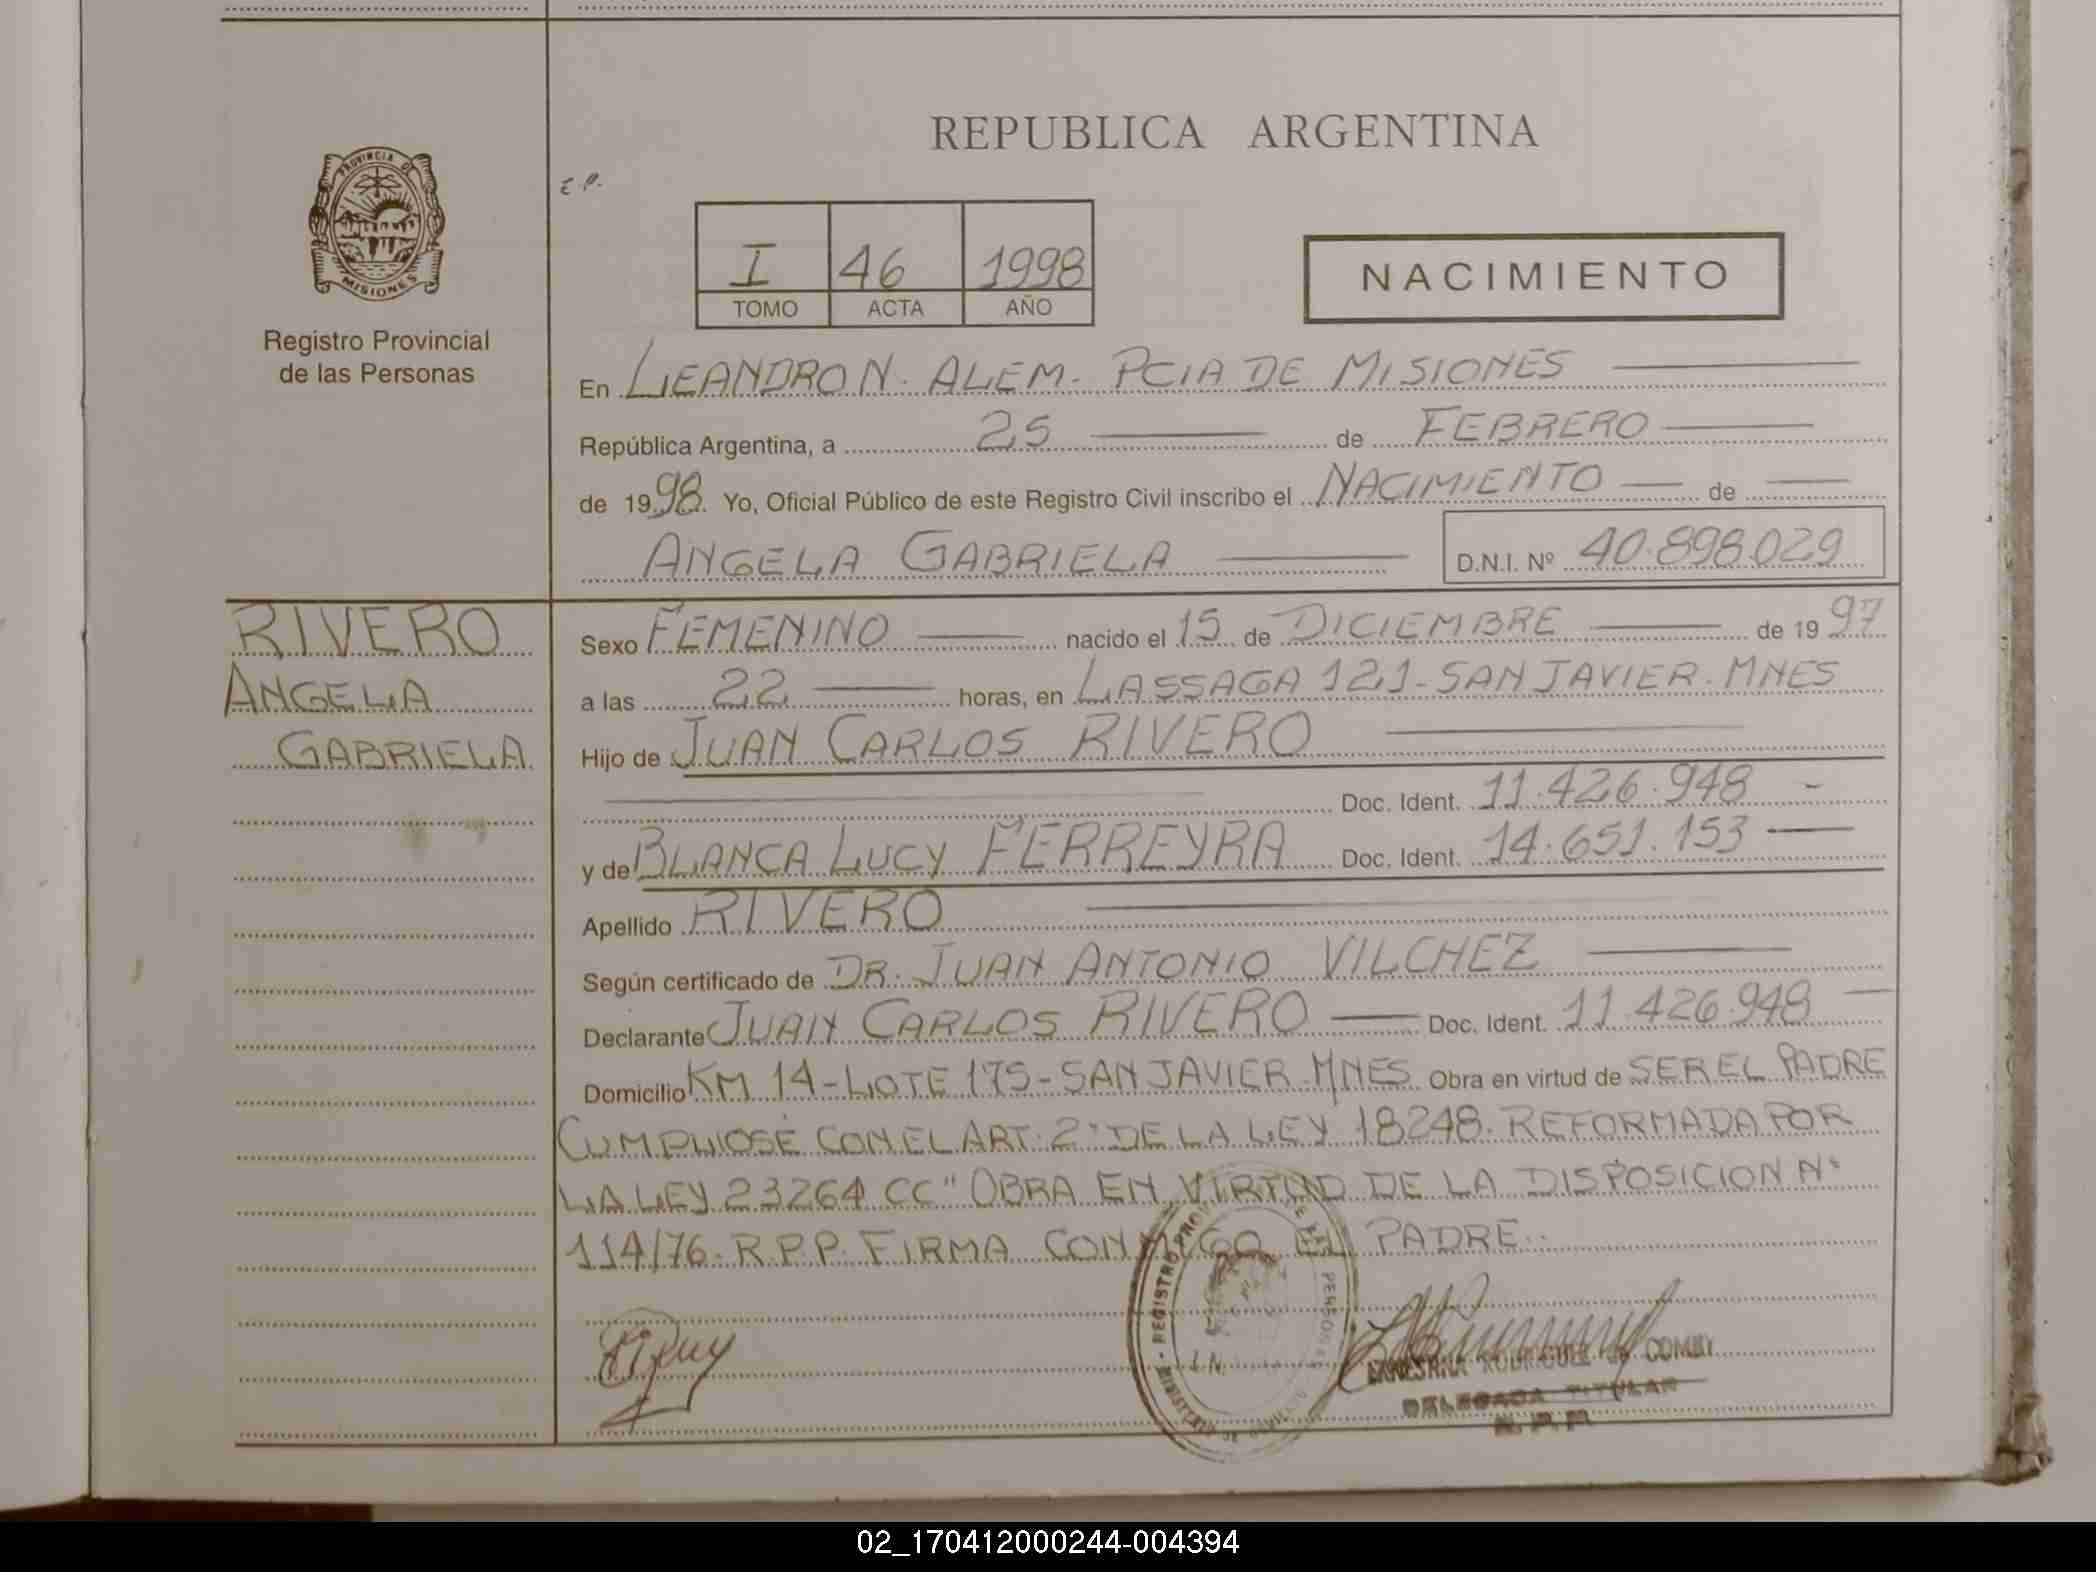 REPUBLICA ARGENTINA
PROVINCIA DE
MISIONES
Registro Provincial
de las Personas
E.P.
I 46 1998
TOMO ACTA AÑO
NACIMIENTO
En LEANDRO N. ALEM. PCIA DE MISIONES
República Argentina, a 25 de FEBRERO
de 1998. Yo, Oficial Público de este Registro Civil inscribo el NACIMIENTO de
ANGELA GABRIELA D.N.I. Nº 40.898.029
RIVERO
ANGELA
GABRIELA
Sexo FEMENINO nacido el 15 de DICIEMBRE de 1997
a las 22 horas, en LASSAGA 121-SAN JAVIER.MNES
Hijo de JUAN CARLOS RIVERO
Doc. Ident. 11.426.948 -
y de BLANCA LUCY FERREYRA Doc. Ident. 14.651.153
Apellido RIVERO
Según certificado de DR. JUAN ANTONIO VILCHEZ
Declarante JUAN CARLOS RIVERO Doc. Ident. 11.426.948
Domicilio KM 14-LOTE 175-SAN JAVIER.MNES Obra en virtud de SER EL PADRE
CUMPLIOSE CON EL ART. 2° DE LA LEY 18248. REFORMADA POR
LA LEY 23264 CC" OBRA EN VIRTUD DE LA DISPOSICION N°
114/76. R.P.P. FIRMA CONMIGO EL PADRE..
REGISTRO PROV DE LAS PERSONAS
L.N.
RODRIGUEZ DE
DELEGADA TITULAR
R.P.P.
02_170412000244-004394